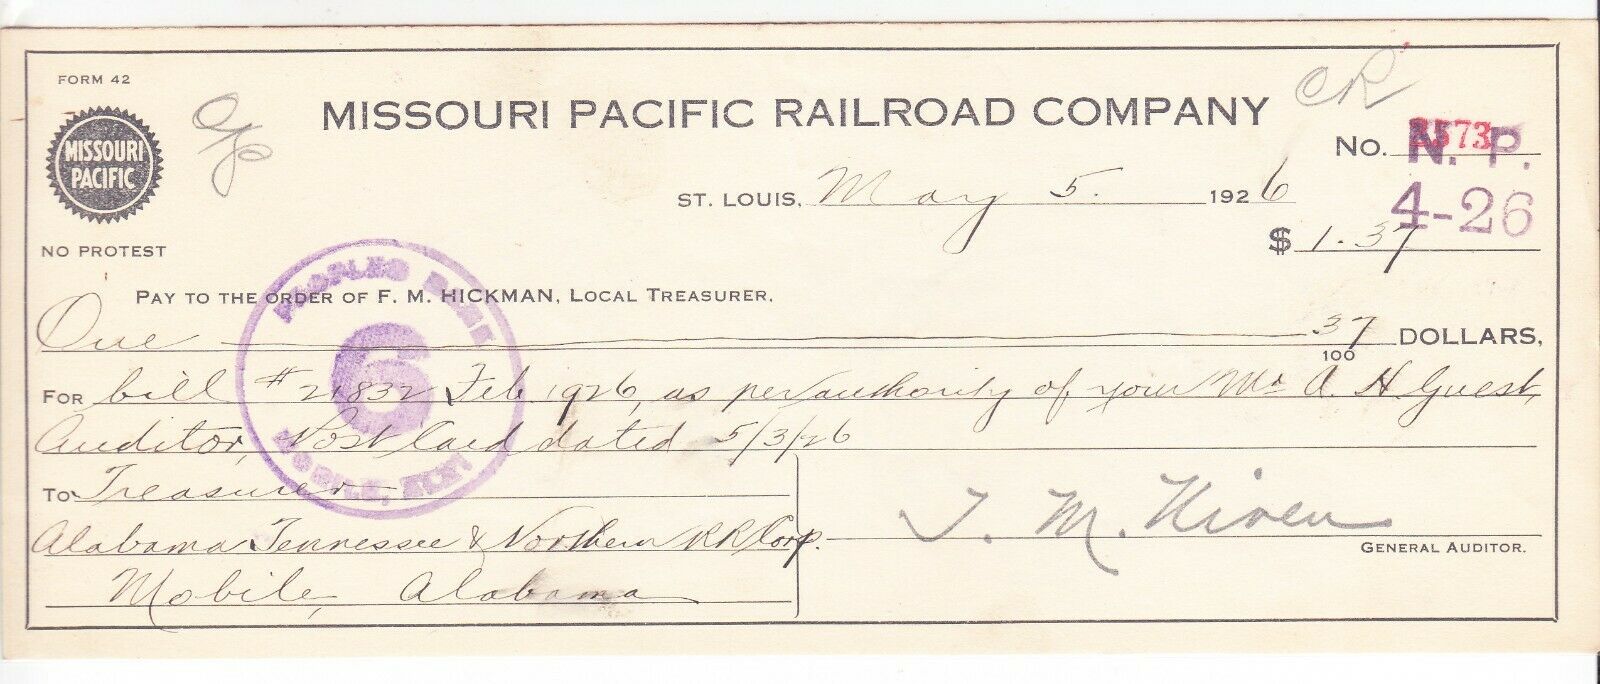 FORM 42
MISSOURI PACIFIC
MISSOURI PACIFIC RAILROAD COMPANY
CR
No. 3573
N. P.
4-26
ST. LOUIS, May 5. 1926
$ 1.37
NO PROTEST
PAY TO THE ORDER OF F. M. HICKMAN, LOCAL TREASURER.
One 37/100 DOLLARS,
FOR bill # 21832 Feb 1926, as per authority of your Mr A. H Guest,
Auditor, Post Card dated 5/3/26
TO Treasurer
Alabama Tennessee & Northern RR Corp.
Mobile, Alabama
PEOPLES BANK
6
MOBILE, ALA.
GENERAL AUDITOR.